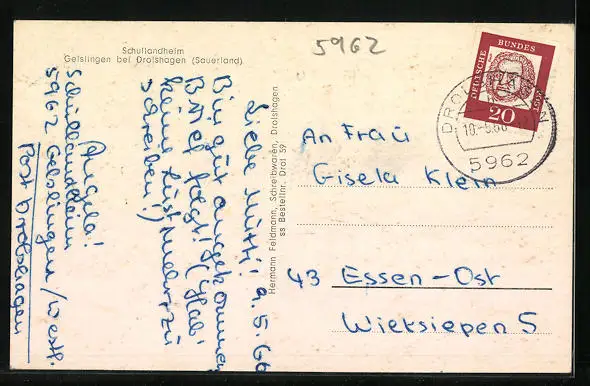 Schullandheim
Gelslingen bei Drolshagen (Sauerland)
5962
Liebe Mutti! 9.5.66
Bin gut angekommen
Brief folgt! (Hab'
keine Lust mehr zu
schreiben!)
Angela!
Schullandheim
5962 Gelslingen/Westf.
Post Drolshagen
Hermann Feldmann, Schreibwaren, Drolshagen
ss Bestellnr. Drol 59
DEUTSCHE BUNDESPOST
20
5962
An Frau
Gisela Klein
43 Essen-Ost
Wieksiepen 5